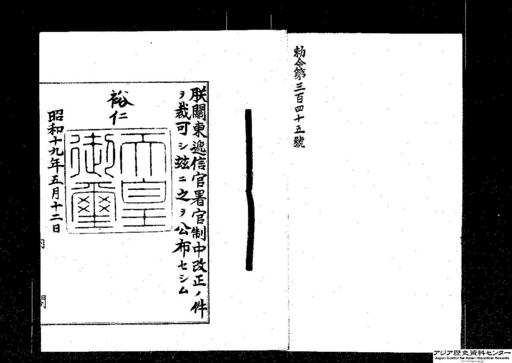 勅令第三百四十五號
朕關東遞信官署官制中改正ノ件
ヲ裁可シ玆ニ之ヲ公布セシム
裕仁
天皇
御璽
昭和十九年五月十二日
内閣
アジア歴史資料センター
Japan Center for Asian Historical Records